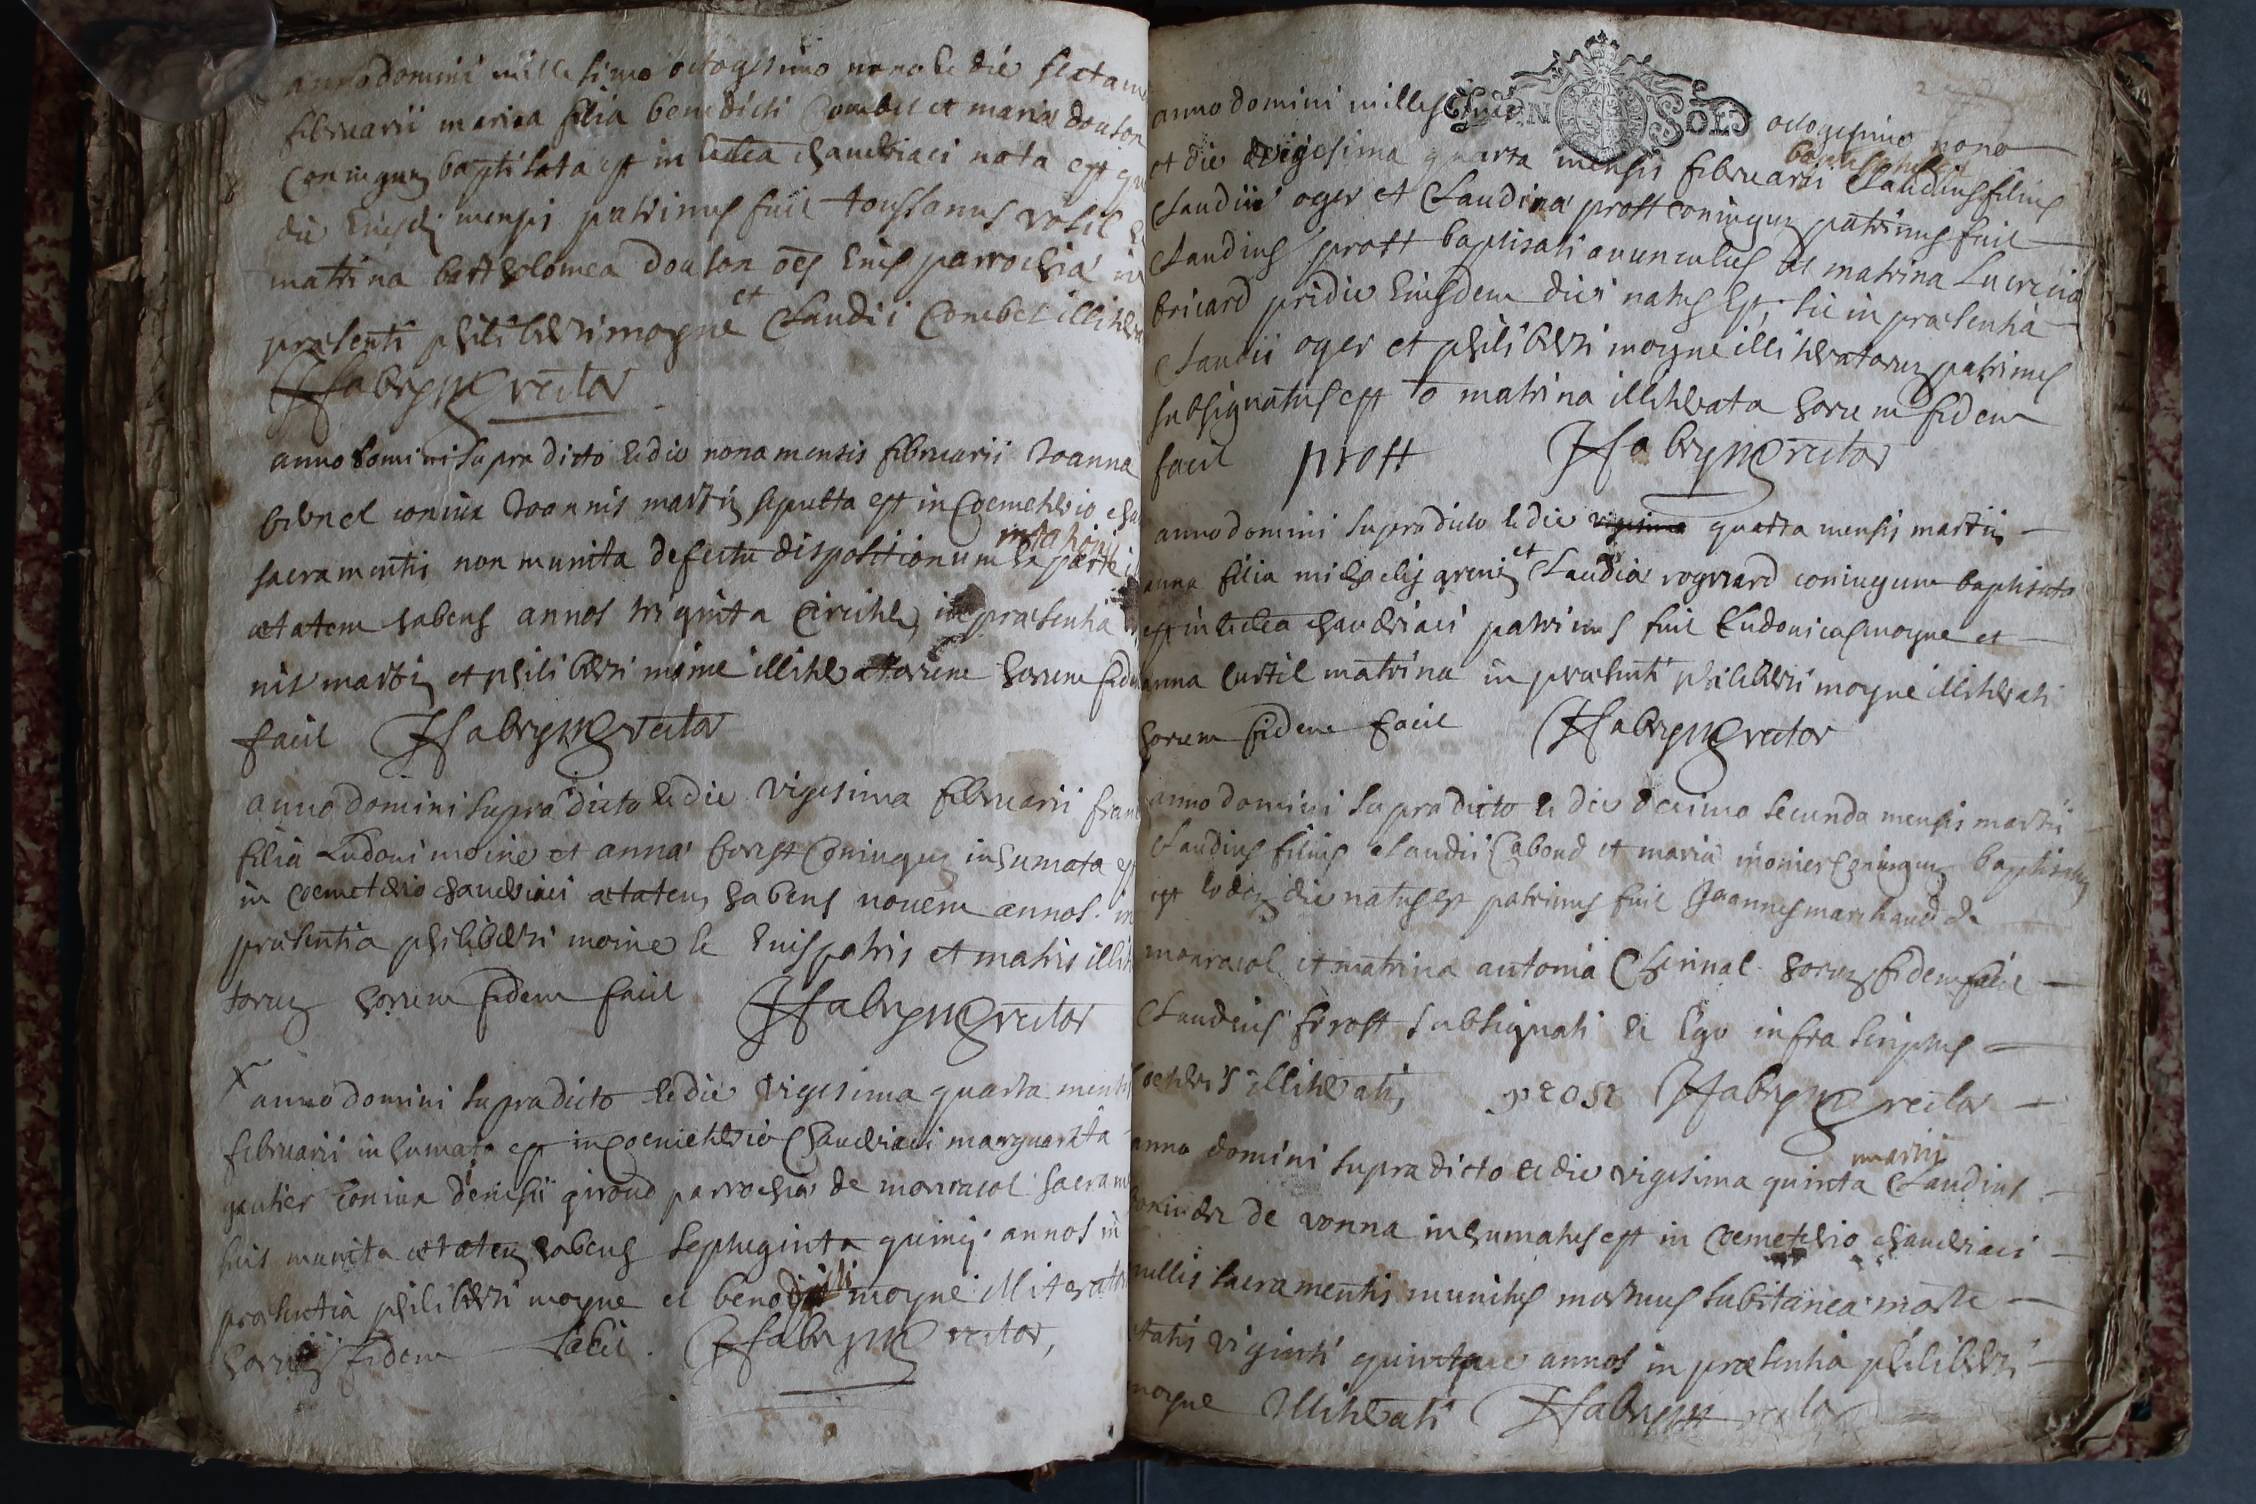 anno domini millesimo octogesimo nono et die sexta
februarii maria filia benedicti Combet et maria douson
coniugum baptisata est in ecclea chaveriaci nata est
die eiusd mensis patrinus fuit toussanus rosil
matrina bartholomea douson oes eius parrochia in
prasenti philiberti moyne et Claudii Combet illitera
H fabry rector
anno domini supra dicto et die nona mensis februarii Joanna
coniux Joannis martin sepulta est in coemeterio cha
sacramentis non munita defectu dispositionum ex parte
aetatem habens annos triginta circiter, in praesentia
nis martin et philiberti moine illiteratorum horum fidem
facit H fabry rector
anno domini supra dicto et die vigesima februarii fran
filia Ludoui moine et anna coniugum inhumata est
in coemeterio chaveriaci aetatem habens nouem annos in
prasentia philiberti moine et eius patris et matris illit
torum horum fidem facit H fabry rector
x anno domini supra dicto et die vigesima quarta mensis
februarii inhumata est in coemeterio chaveriaci marguarita
gautier coniux denisii giroud parrochia de monracol sacram
tis munita aetatem habens septuginta quinq annos in
prasentia philiberti moyne et benedicti moyne illiterator
horum fidem facit H fabry rector,
anno domini millesimo octogesimo nono
et die vigesima quarta mensis februarii baptisatus Claudius filius
Claudii oger et Claudina prost coniugum patrinus fuit
Claudius prost baptisati auunculus et matrina Lucrecia
bricard pridie eiusdem diei natus est, sic in prasentia
Claudii oger et philiberti moyne illiteratorum patrinus
subsignatus est matrina illiterata horum fidem
facit prost H fabry rector
anno domini supra dicto et die quarta mensis martii
anna filia michaelis et Claudia coniugum baptisata
est in ecclea chaveriaci patrinus fuit Ludouicus moyne et
anna curtil matrina in prasenti philiberti moyne illiterati
horum fidem facit H fabry rector
anno domini supra dicto et die decimo secunda mensis martii
Claudius filius Claudii Caboud et maria monier coniugum baptisatus
est eodem die natus est patrinus fuit Joannes marchand de
monracol et matrina antonia horum fidem facit
Claudius prost subsignati et Ego infra scriptus
coeteris illiterati, prost H fabry rector
anno domini supra dicto et die vigesima quinta martii Claudius
de vonna inhumatus est in coemeterio chaveriaci
nullis sacramentis munitus mortuus subitanea morte
aetatis viginti quinque annos in praesentia philiberti
moyne illiterati H fabry rector